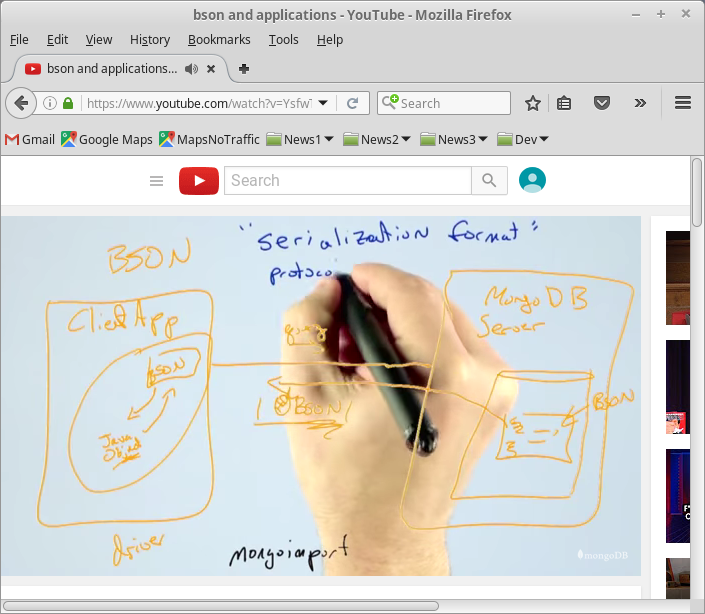 bson and applications - YouTube - Mozilla Firefox
File Edit View History Bookmarks Tools Help
bson and applications...
https://www.youtube.com/watch?v=Ysfw
Search
Gmail Google Maps MapsNoTraffic News1 News2 News3 Dev
Search
"serialization format"
BSON
protoco
Client App
MongoDB
Server
query
BSON
BSON
BSON
Java
Object
driver
mongoimport
mongoDB